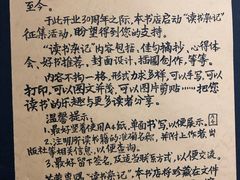 至今。
于此开业30周年之际,本书店启动“读书杂记”
征集活动,盼望得到您的支持。
“读书杂记”内容包括,佳句摘抄、心得体
会、好书推荐、封面设计、插图创作等等。
内容不拘一格,形式亦多样,可以手写,可以
打印,可以图文并茂,可以图片剪贴……把您
读书的乐趣与更多读者分享。
温馨提示:
1.最好竖着使用A4纸,单面书写,以便展示。
2.注明所读书籍的准确名称,并附上作者、出
版社等相关信息,以便查询。
3.最好留下签名,及适当联系方式,以便交流。
“读书杂记”,本书店将珍藏在文件